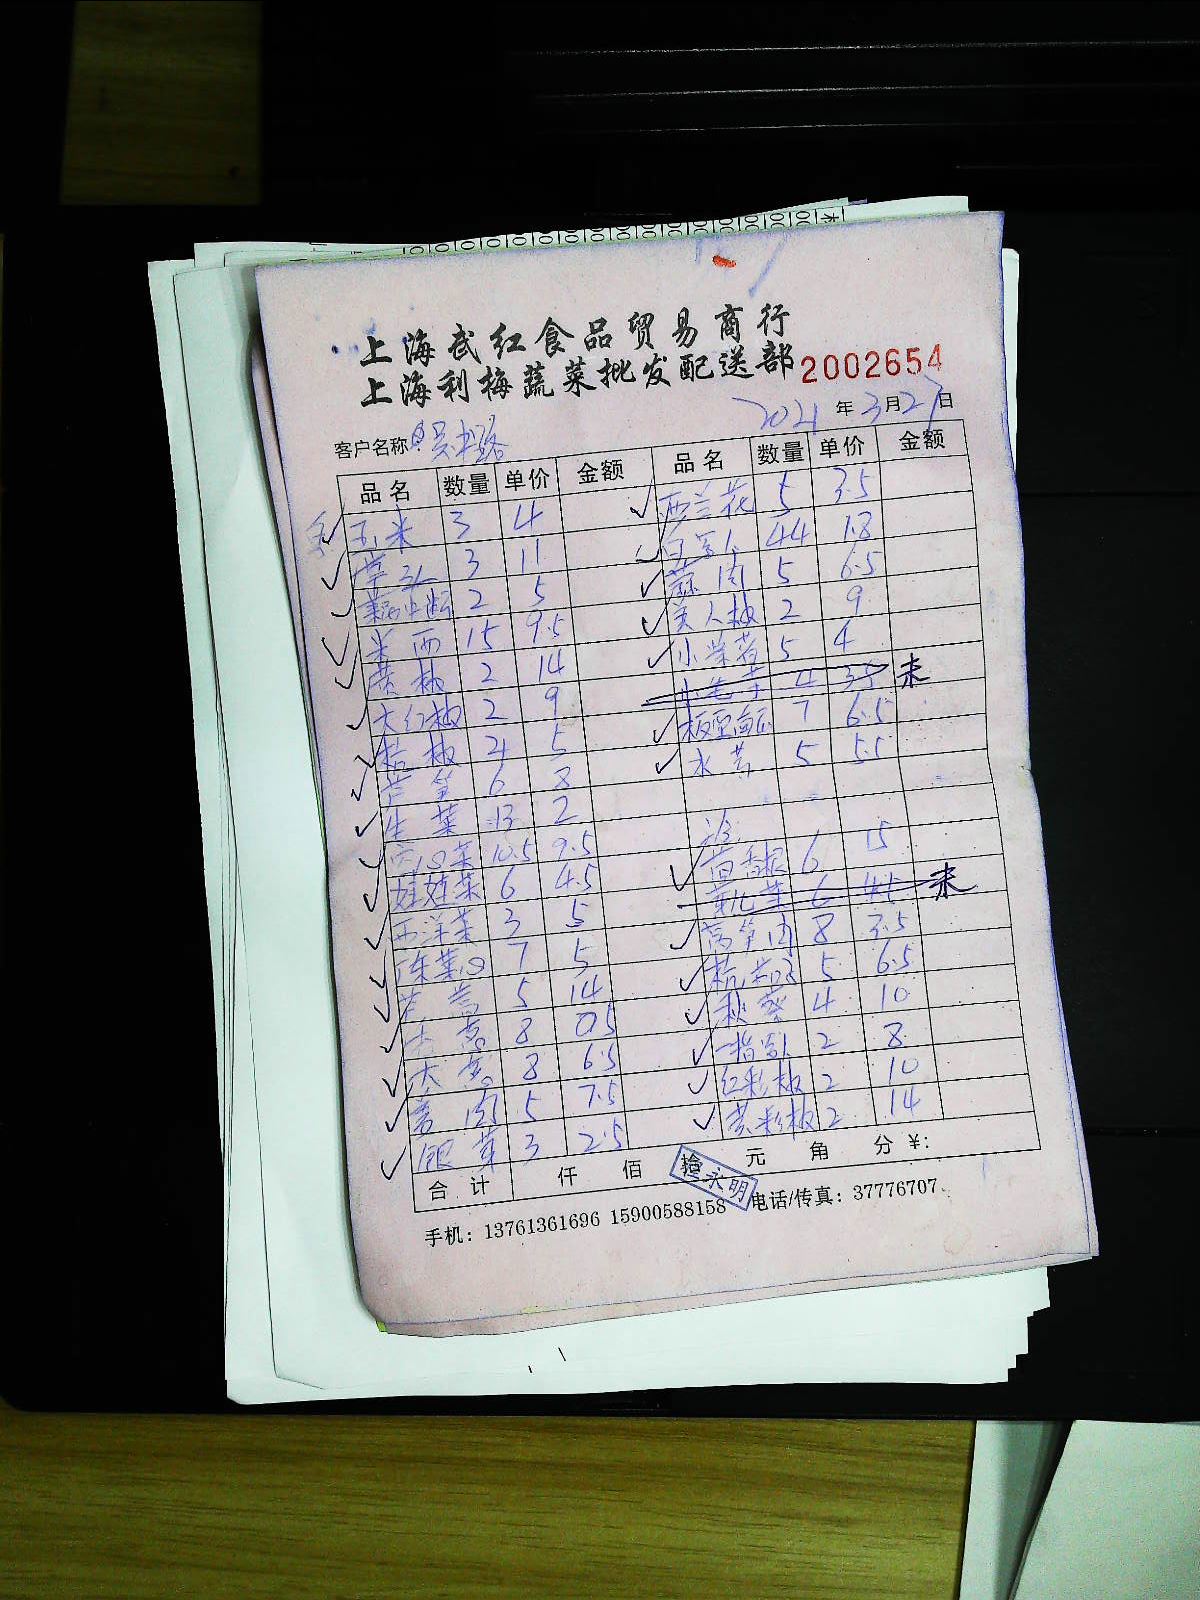 上海武红食品贸易商行
上海利梅蔬菜批发配送部 2002654
2021年3月27日
客户名称:吴
品名 数量 单价 金额 品名 数量 单价 金额
玉米 3 4 西兰花 5 3.5
草头 3 11 白萝卜 44 1.8
2 5 蒜肉 5 6.5
米西 15 9.5 美人椒 2 9
黄椒 2 14 小茉茄 5 4
大红椒 2 9 小毛菜 4 3.5 未
杭椒 4 5 板豆 7 6.5
芦笋 6 8 水芹 5 5.5
生菜 13 2
10.5 9.5
娃娃菜 6 4.5 茴香根 6 15
西洋菜 3 5 菜 6 4.5 未
广东菜心 7 5 莴笋肉 8 3.5
5 14 杭茄 5 6.5
8 0.5 秋葵 4 10
大 8 6.5 2 8
肉 5 7.5 红彩椒 2 10
银芽 3 2.5 黄彩椒 2 14
合计 仟 佰 拾 元 角 分 ¥:
永明
手机: 13761361696 15900588158 电话/传真: 37776707